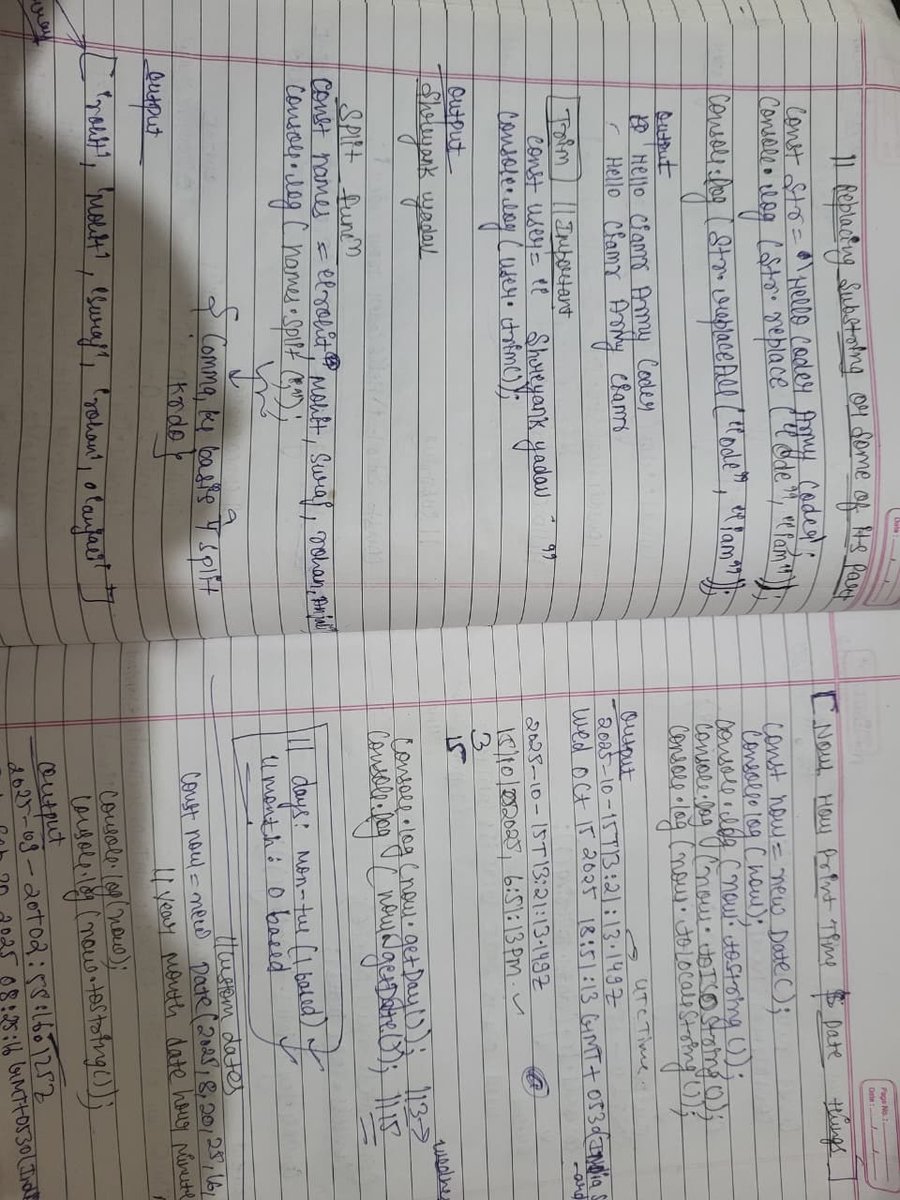 // Replacing Substring or Some of its part
const str = "Hello Coder Army Coder";
console.log (str.replace ("Code", "Cham"));
console.log (str.replaceAll ("Code", "Cham"));
output
Hello Chamr Army Coder
Hello Chamr Army Chamr
Trim // Important
const user = " Shreyank yadav "
console.log (user.trim());
output
Shreyank yadav
Split funcn
const names = "rohit, mohit, suraj, rohan, Anjali
console.log (names.split (","));
{ Comma ke basis p split
krdo }
output
["rohit", "mohit", "suraj", "rohan",
Page No.:
Date:
[Now, How Print Time & Date things]
const now = new Date();
console.log (now);
console.log (now.tostring());
console.log (now.toISOstring());
console.log (now.tolocalestring());
output
UTC Time
2025-10-15T13:21:13.149Z
Wed Oct 15 2025 18:51:13 GMT+0530 (India S
2025-10-15T13:21:13.149Z
15/10/2025, 6:51:13 PM
3
15
console.log (now.getDay()); // 3 →
console.log (now.getDate()); // 15
// days: mon-tu (1 based)
month: 0 based
// Custom dates
const now = new Date (2025, 8, 20, 25, 16,
// year month date hour minute
console.log (now);
console.log (now.tostring());
output